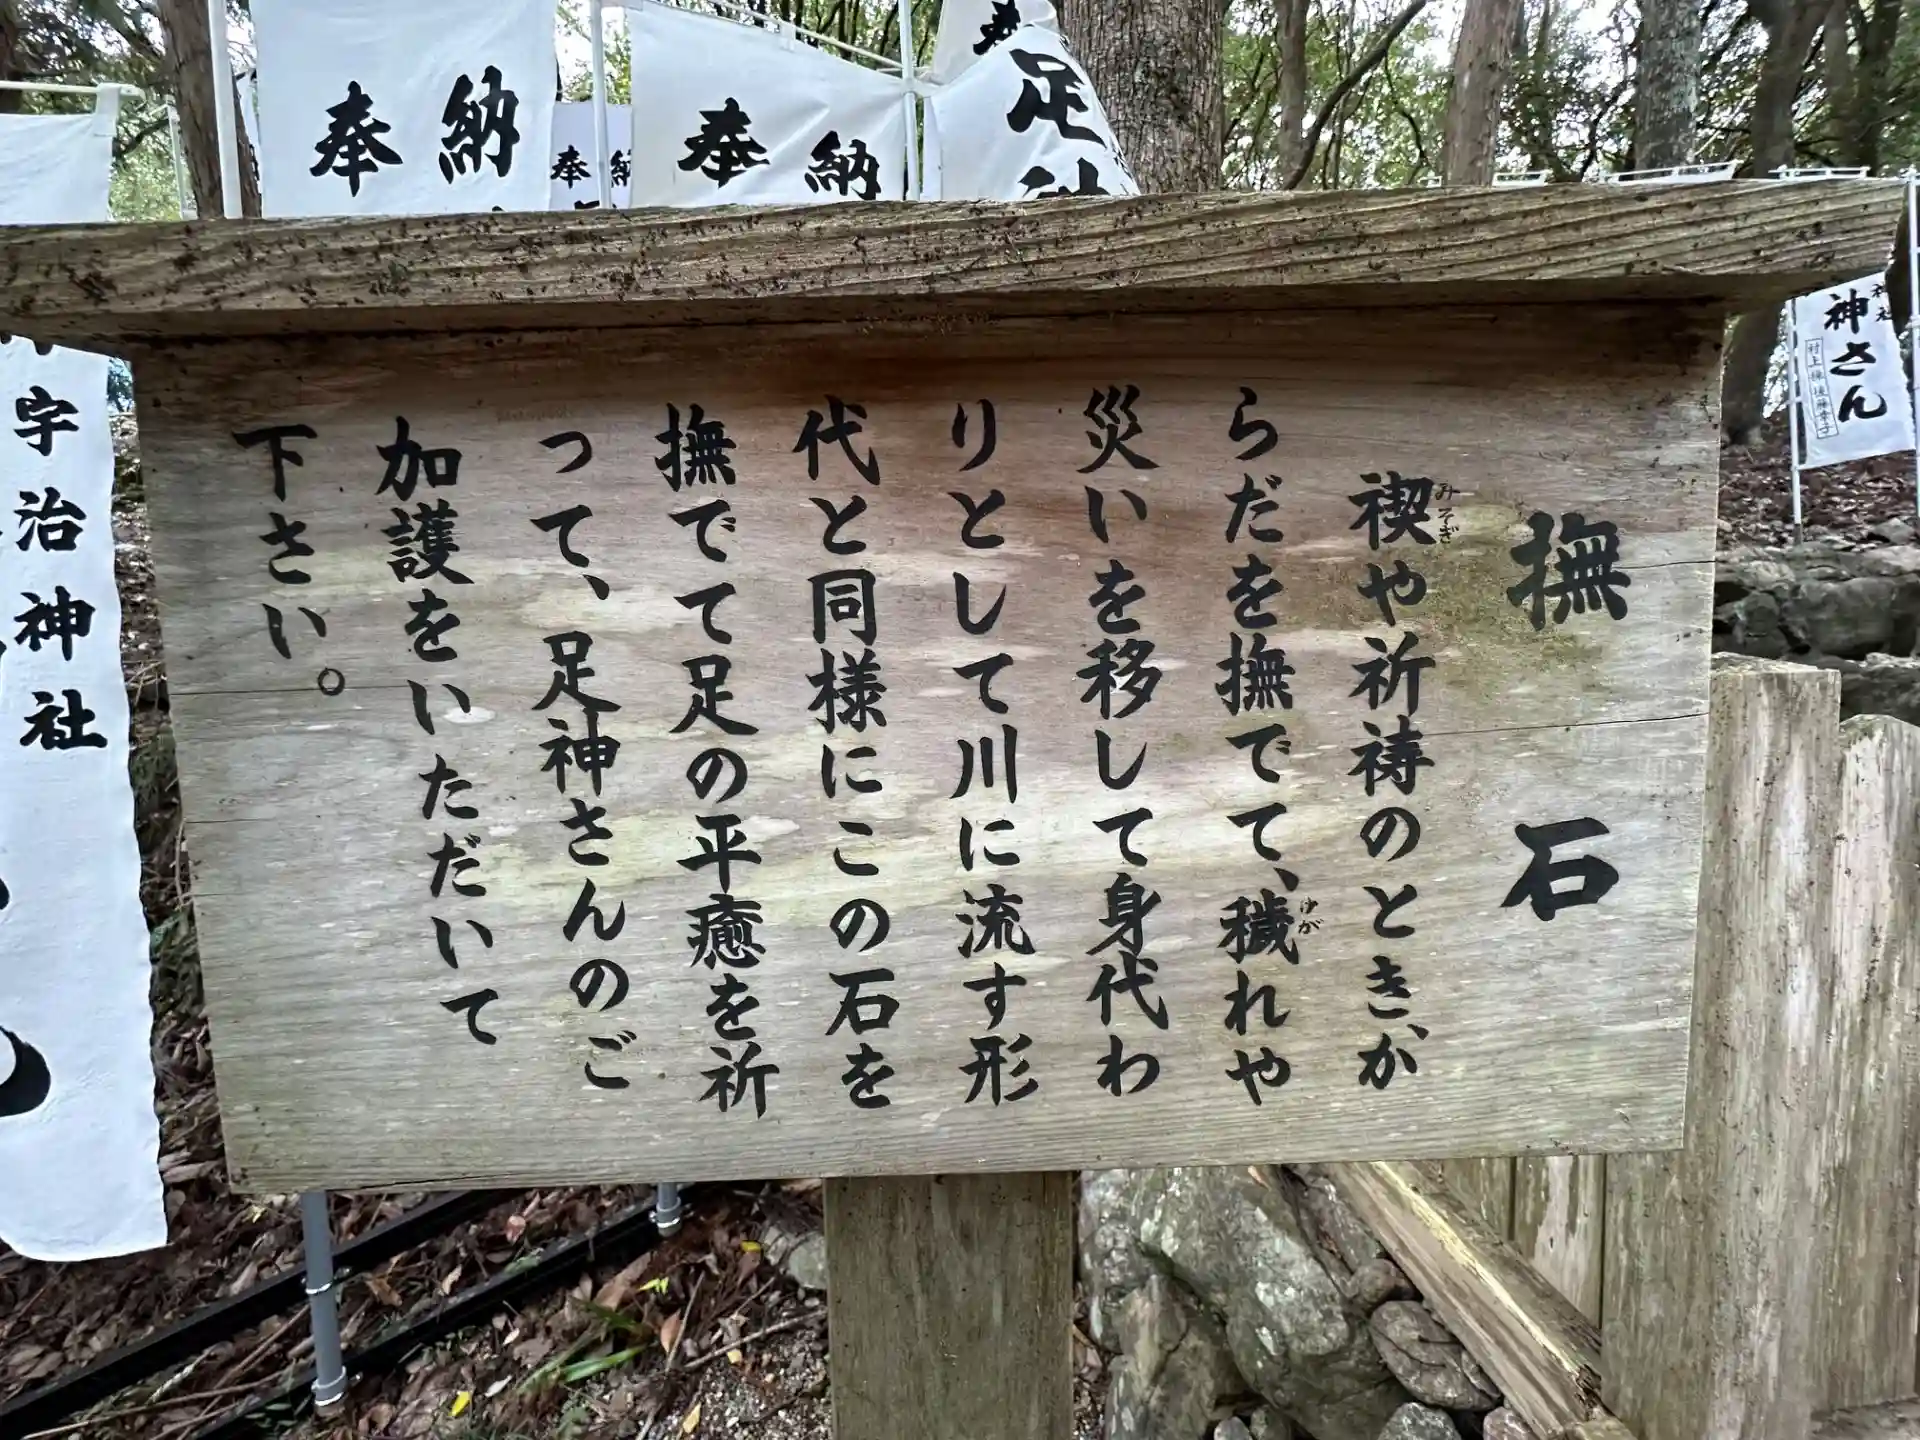 撫石
禊や祈祷のとき、か
らだを撫でて、穢れや
災いを移して身代わ
りとして川に流す形
代と同様にこの石を
撫でて足の平癒を祈
って、足神さんのご
加護をいただいて
下さい。
みそぎ
けが
奉納
奉納
奉納
足神
宇治神社
神さん